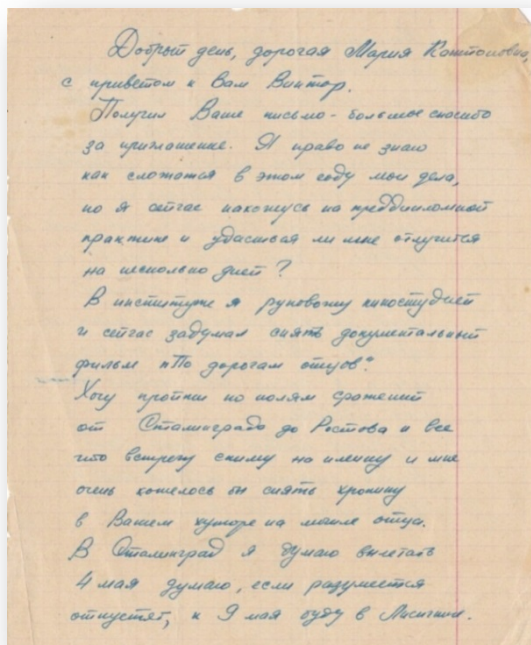 Добрый день, дорогая Мария
с приветом к Вам Виктор.
Получил Ваше письмо - большое спасибо
за приглашение. Я право не знаю
как сложатся в этом году мои дела,
но я сейчас нахожусь на преддипломной
практике и удастся ли мне отлучится
на несколько дней?
В институте я руковожу киностудией
и сейчас задумал снять документальный
фильм "По дорогам отцов".
Хочу пройти по полям сражений
от Сталинграда до Ростова и все
что встречу сниму на пленку и мне
очень хотелось бы снять хронику
в Вашем хуторе на могиле отца.
В Сталинград я думаю вылетать
4 мая думаю, если разумеется
отпустят, к 9 мая буду в